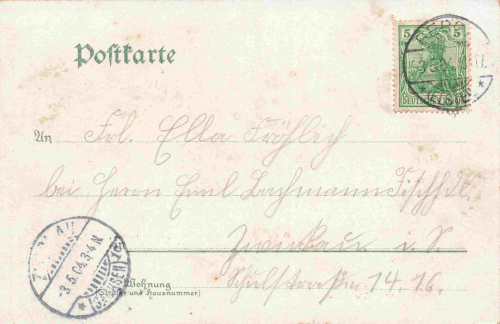 Postkarte
5 5
DEUTSCHES REICH
An Frl. Ella Fröhlich
bei Herrn Emil Bachmann Tischl.
Zwenkau i. S
Schulstraße 14.16.
Wohnung
(Straße und Hausnummer)
-3.5.04. 3-4 N
(SACHSEN)